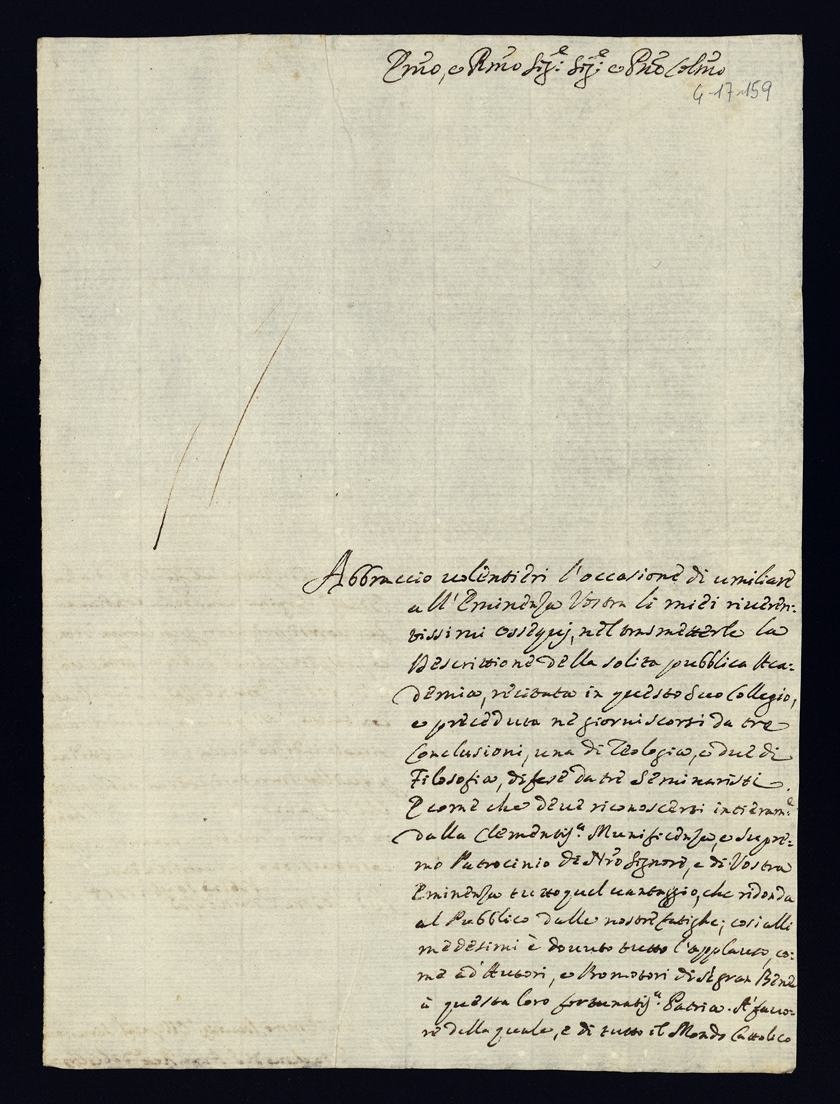 Emõ, e Rmõ Sig:ᵉ Sig:ᵉ e Prõe Colmõ
4-17-159
Abbraccio volentieri l'occasione di umiliare
all'Eminenza Vostra li miei riveren:
tissimi ossequj, nel trasmetterle la
Descrittione della solita pubblica Aca:
demia, recitata in questo Suo Collegio,
e preceduta ne giorni scorsi da tre
Conclusioni, una di Teologia, e due di
Filosofia, difese da tre Seminaristi.
E come che deve riconoscersi intieram:ᵉ
dalla Clementis:ᵃ Munificenza, e Supre:
mo Patrocinio di Nrõ Signore, e di Vostra
Eminenza tutto quel vantaggio, che ridonda
al Pubblico dalle nostre fatighe; così alli
medesimi è dovuto tutto l'applauso, co:
me ad Autori, e Promotori di sì gran Bene
à questa loro fortunatis:ᵃ Patria. A' favo:
re della quale, e di tutto il Mondo Cattolico